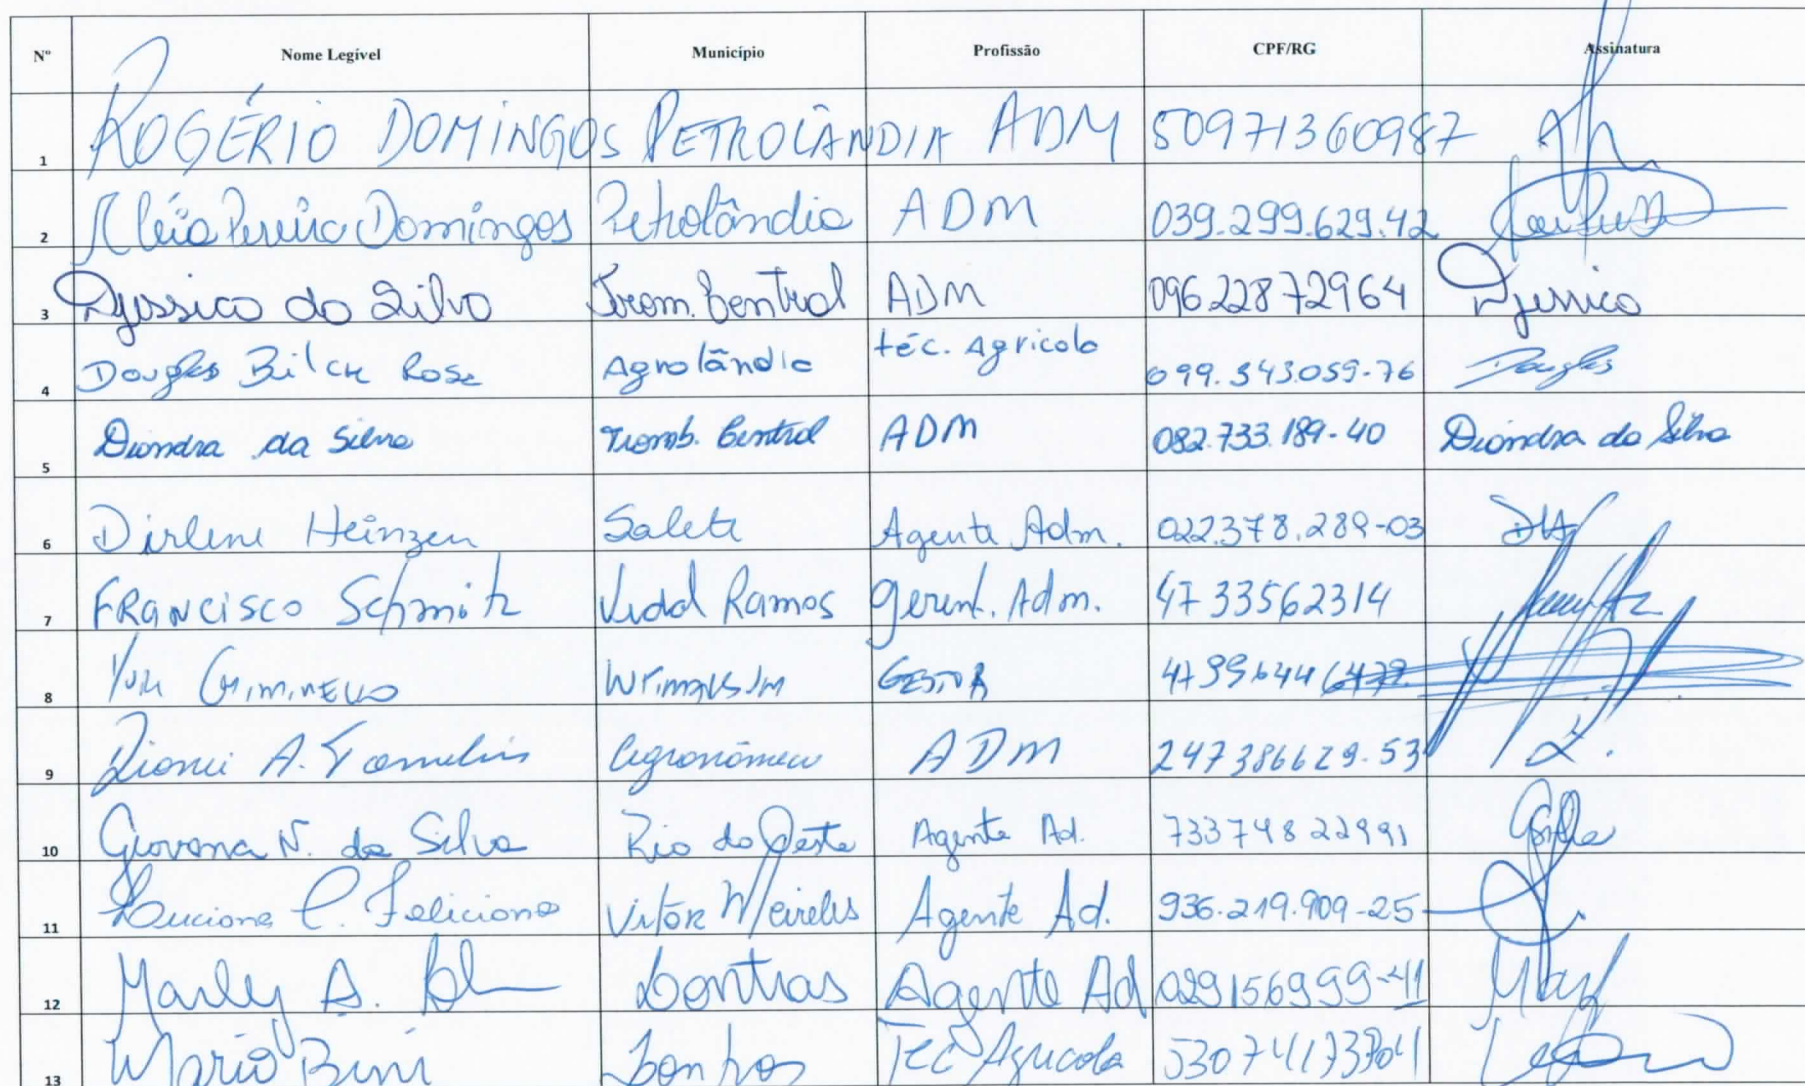 Nº Nome Legível Município Profissão CPF/RG Assinatura
1 ROGÉRIO DOMINGOS PETROLÂNDIA ADM 50971360987
2 Cléia Pereira Domingos Petrolândia ADM 039.299.629.42
3 Djessica da Silva Trom. Central ADM 096 228 729 64 Djessica
4 Douglas Rosa Agrolândia téc. Agricola 099.343.059-76 Douglas
5 Diondra da Silva Tromb. Central ADM 082.733.189-40 Diondra da Silva
6 Dirlene Heinzen Salete Agente Adm. 022.378.289-03 DH
7 FRANCISCO Schmitz Vidal Ramos Gerent. Adm. 47 33562314
8 Yuri Witmarsum GESTOR
9 A. Agronômica ADM 247386629-53
10 Giovana N. da Silva Rio do Oeste Agente Ad. 73374822991
11 Luciana C. Feliciano Vitor Meireles Agente Ad. 936.219.909-25
12 Marley A. Lontras Agente Ad 029156999-41
13 Mario Bini Lontras Tec Agricola